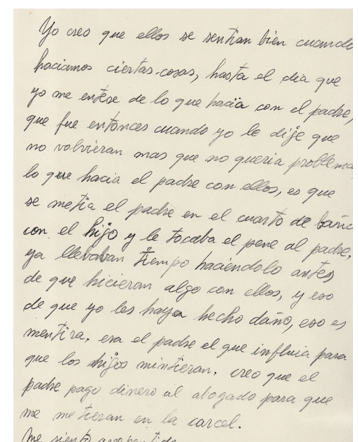 Yo creo que ellos se sentian bien cuando
haciamos ciertas cosas, hasta el dia que
yo me entere de lo que hacia con el padre,
que fue entonces cuando yo le dije que
no volvieran mas que no queria problema
lo que hacia el padre con ellos, es que
se metia el padre en el cuarto de baño
con el hijo y le tocaba el pene al padre,
ya llevaban tiempo haciendolo antes
de que hicieran algo con ellos, y eso
de que yo les haya hecho daño, eso es
mentira, era el padre el que influia para
que los hijos mintieran, creo que el
padre pago dinero al abogado para que
me metieran en la carcel.
Me siento